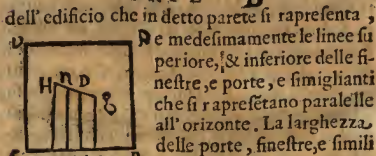 dell' edificio che in detto parete ſi rapreſenta ,
e medeſimamente le linee ſu
periore, & inferiore delle fi-
neſtre,e porte, e ſimiglianti
che ſi rapreſẽtano paralelle
all' orizonte . La larghezza
delle porte , fineſtre,e ſimili
H n D